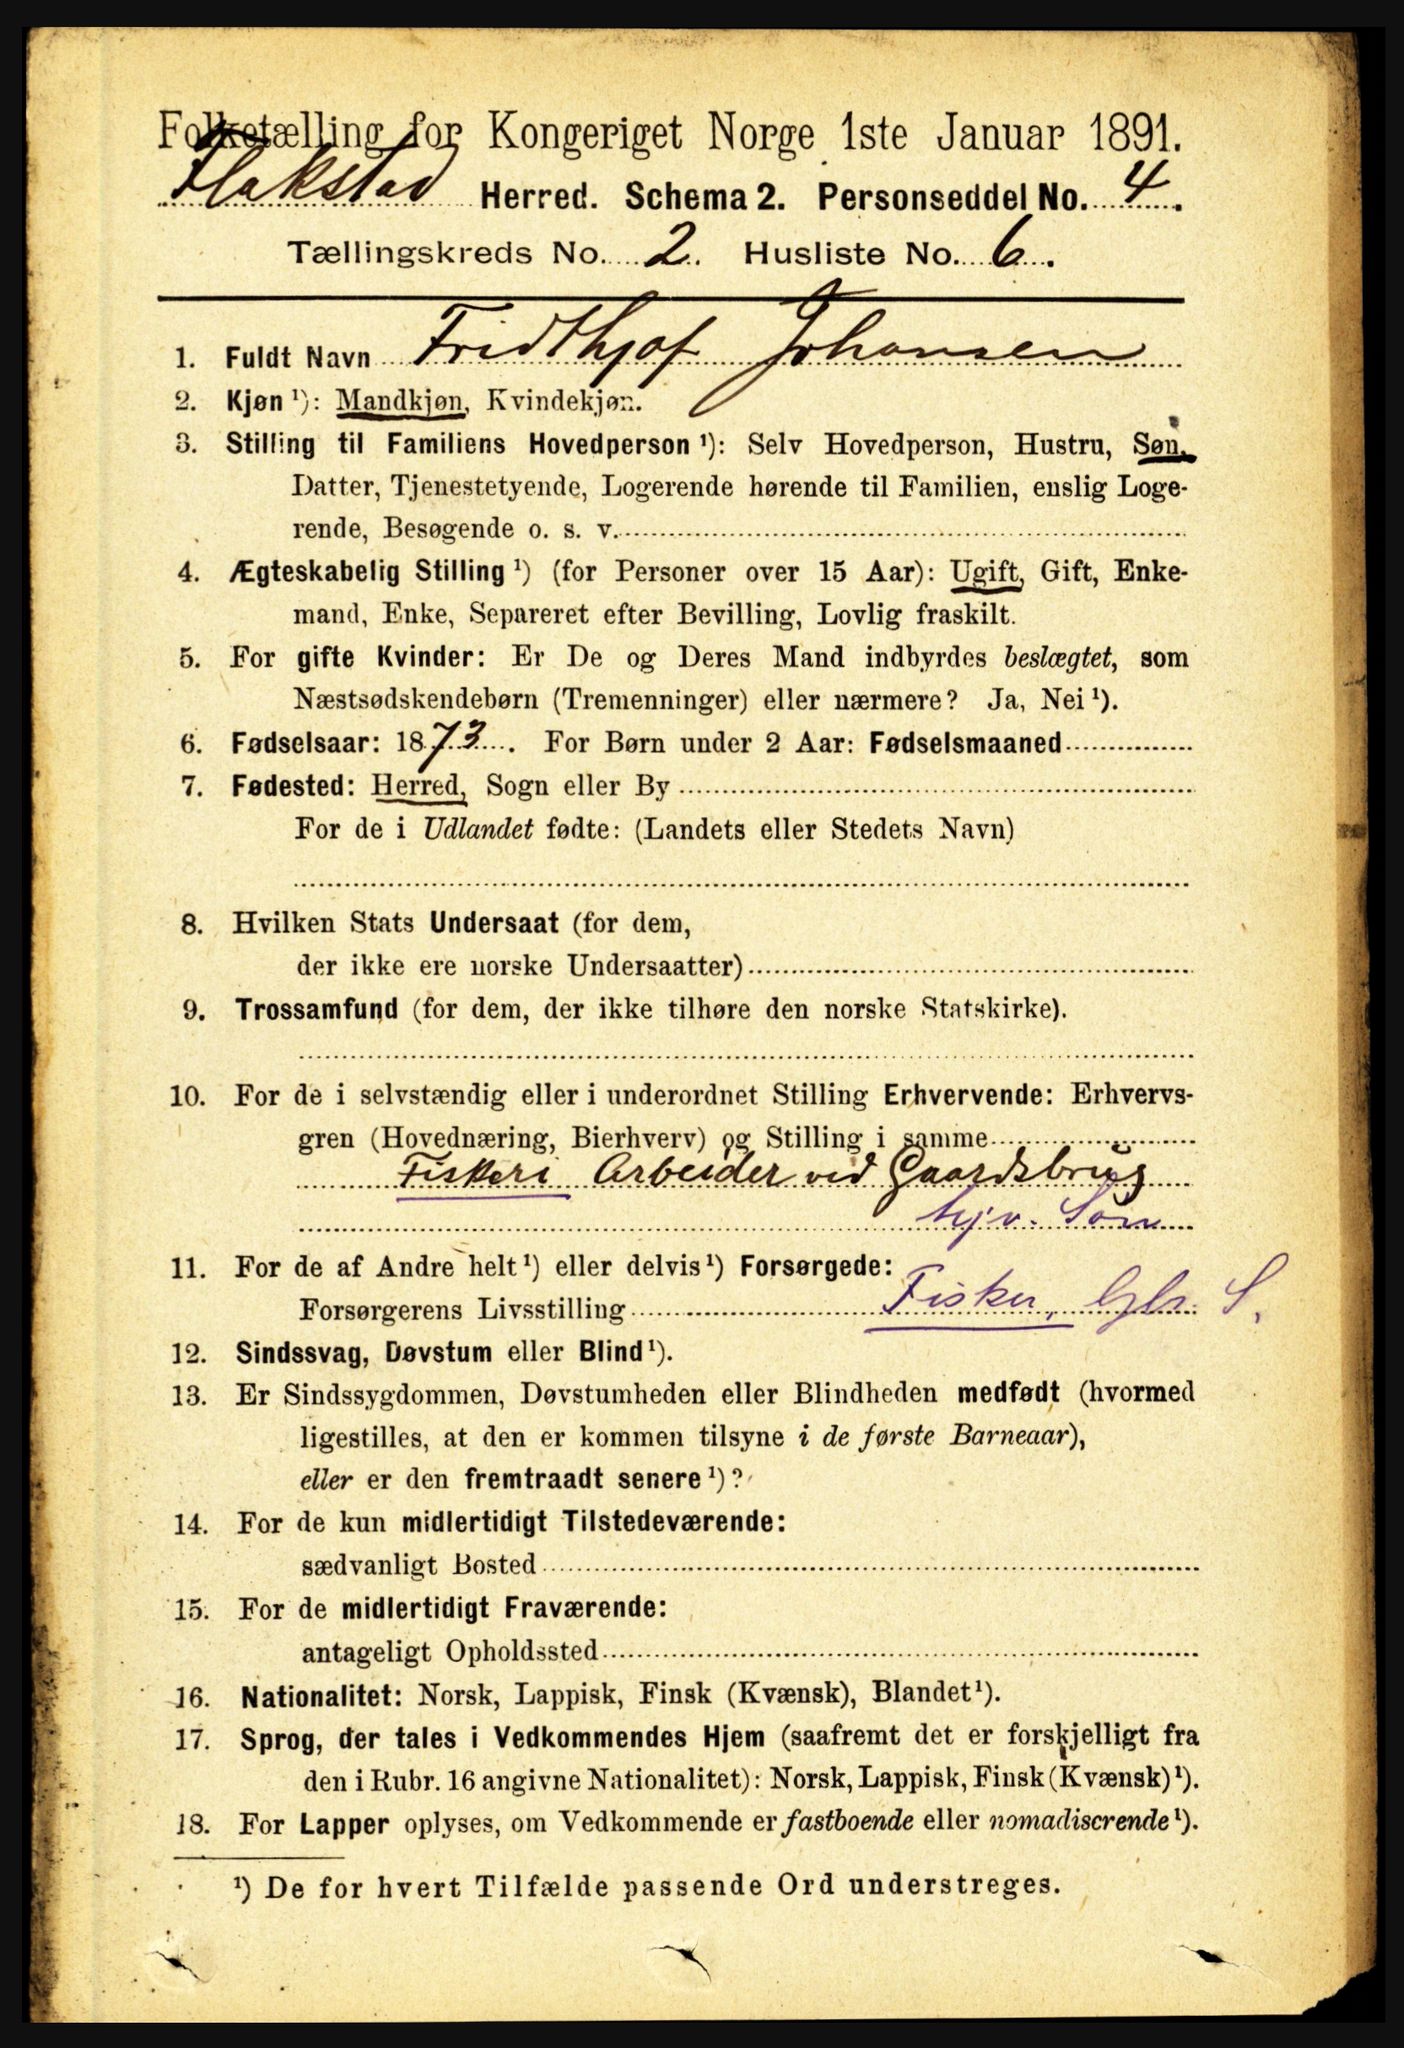 Folketælling for Kongeriget Norge 1ste Januar 1891.
Flakstad Herred. Schema 2. Personseddel No. 4.
Tællingskreds No. 2. Husliste No. 6.
1. Fuldt Navn Fridthjof Johansen
2. Kjøn ¹): Mandkjøn, Kvindekjøn.
3. Stilling til Familiens Hovedperson ¹): Selv Hovedperson, Hustru, Søn,
Datter, Tjenestetyende, Logerende hørende til Familien, enslig Loge-
rende, Besøgende o. s. v.
4. Ægteskabelig Stilling ¹) (for Personer over 15 Aar): Ugift, Gift, Enke-
mand, Enke, Separeret efter Bevilling, Lovlig fraskilt.
5. For gifte Kvinder: Er De og Deres Mand indbyrdes beslægtet, som
Næstsødskendebørn (Tremenninger) eller nærmere? Ja, Nei ¹).
6. Fødselsaar: 1873. For Børn under 2 Aar: Fødselsmaaned
7. Fødested: Herred, Sogn eller By
For de i Udlandet fødte: (Landets eller Stedets Navn)
8. Hvilken Stats Undersaat (for dem,
der ikke ere norske Undersaatter)
9. Trossamfund (for dem, der ikke tilhøre den norske Statskirke).
10. For de i selvstændig eller i underordnet Stilling Erhvervende: Erhvervs-
gren (Hovednæring, Bierhverv) og Stilling i samme
Fiskeri Arbeider ved Gaardsbrug
hjv. Søn
11. For de af Andre helt ¹) eller delvis ¹) Forsørgede:
Forsørgerens Livsstilling Fisker, S.
12. Sindssvag, Døvstum eller Blind ¹).
13. Er Sindssygdommen, Døvstumheden eller Blindheden medfødt (hvormed
ligestilles, at den er kommen tilsyne i de første Barneaar),
eller er den fremtraadt senere ¹)?
14. For de kun midlertidigt Tilstedeværende:
sædvanligt Bosted
15. For de midlertidigt Fraværende:
antageligt Opholdssted
16. Nationalitet: Norsk, Lappisk, Finsk (Kvænsk), Blandet ¹).
17. Sprog, der tales i Vedkommendes Hjem (saafremt det er forskjelligt fra
den i Rubr. 16 angivne Nationalitet): Norsk, Lappisk, Finsk (Kvænsk) ¹).
18. For Lapper oplyses, om Vedkommende er fastboende eller nomadiserende ¹).
¹) De for hvert Tilfælde passende Ord understreges.